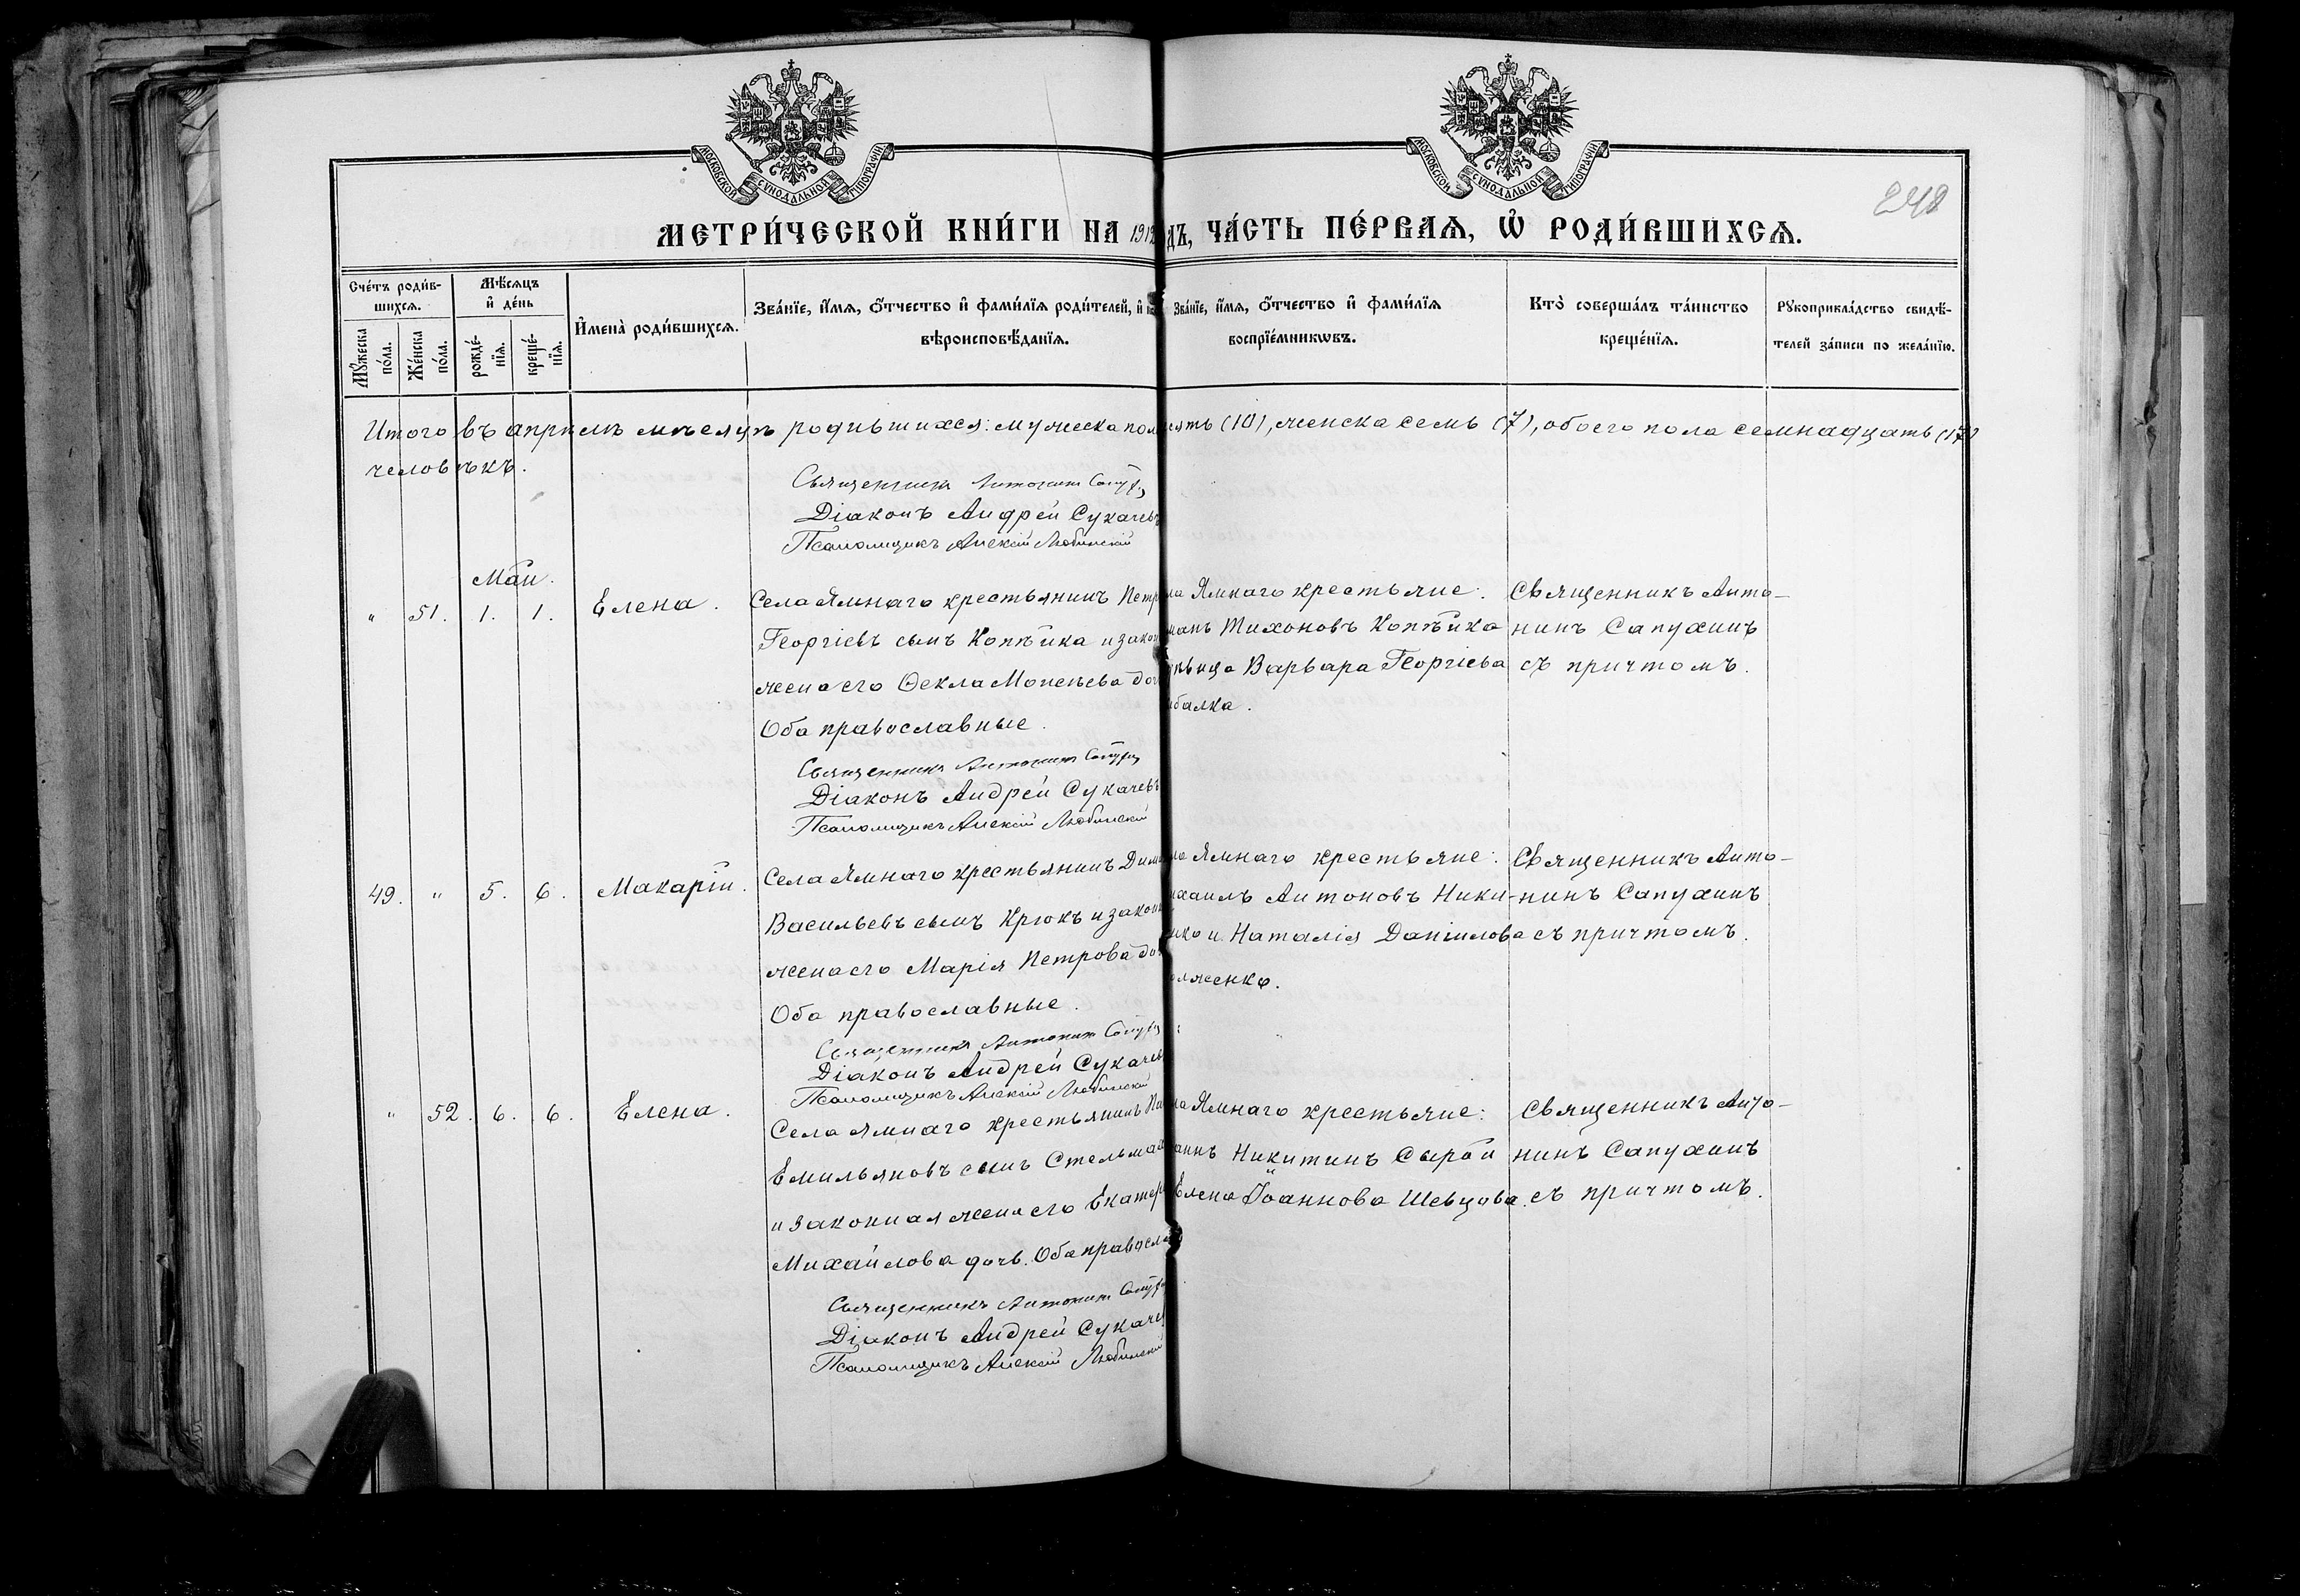 МОСКОВСКОЙ СУНОДАЛЬНОЙ ТИПОГРАФИИ
МОСКОВСКОЙ СУНОДАЛЬНОЙ ТИПОГРАФИИ
248
МЕТРИ́ЧЕСКОЙ КНИ́ГИ НА 1912 ДЪ, ЧА́СТЬ ПЕ́РВАѦ, Ѡ РОДИ́ВШИХСѦ.
Сче́тъ роди́в-
шихсѧ.
Мꙋ́жеска по́ла.
Же́нска по́ла.
Мѣ́сѧцъ
и де́нь
рожде́-
нїѧ.
креще́-
нїѧ.
Имена̀ роди́вшихсѧ.
Зва́нїе, и́мѧ, ѻ́тчество и фами́лїѧ роди́телей, и
вѣроисповѣ́данїѧ.
Зва́нїе, и́мѧ, ѻ́тчество и фами́лїѧ
воспрїе́мникѡвъ.
Кто̀ соверша́лъ та́инство
креще́нїѧ.
Рꙋкоприкла́дство свидѣ́-
телей за́писи по жела́нїю.
Итого въ апрѣлѣ мѣсяцѣ родившихся: мужеска пол ять (10), женска семь (7), обоего пола семнадцать (17)
человѣкъ.
Священникъ Антонинъ
Діаконъ Андрей Сукачевъ
Псаломщикъ Алексій Любинскій
Май.
" 51. 1. 1. Елена.
Села Ямнаго крестьянинъ Петр
Георгіевъ сынъ Копѣйка и закон
жена его Ѳекла Моисеева доч
Оба православные.
ла Ямнаго крестьяне:
манъ Тихоновъ Копѣйка
вица Варвара Георгіева
балка.
Священникъ Анто-
нинъ Сапухинъ
съ причтомъ.
Священникъ Антонинъ
Діаконъ Андрей Сукачевъ
Псаломщикъ Алексій Любинскій
49. " 5. 6. Макарій.
Села Ямнаго крестьянинъ Дим
Васильевъ сынъ Крюкъ и закон
жена его Марія Петрова доч
Оба православные.
ла Ямнаго крестьяне:
ихаилъ Антоновъ Ники-
нко и Наталія Даніилова
оляженко.
Священникъ Анто-
нинъ Сапухинъ
съ причтомъ.
Священникъ Антонинъ
Діаконъ Андрей Сукачев
Псаломщикъ Алексій Любинскій
" 52. 6. 6. Елена.
Села Ямнаго крестьянинъ Па
Емильяновъ сынъ Стельмах
и законная жена его Екатер
Михайлова дочь. Оба правосла
ла Ямнаго крестьяне:
аннъ Никитинъ Сырой
Елена Іоаннова Шевцова.
Священникъ Анто-
нинъ Сапухинъ
съ причтомъ.
Священникъ Антонинъ
Діаконъ Андрей Сукачев
Псаломщикъ Алексій Любинскій